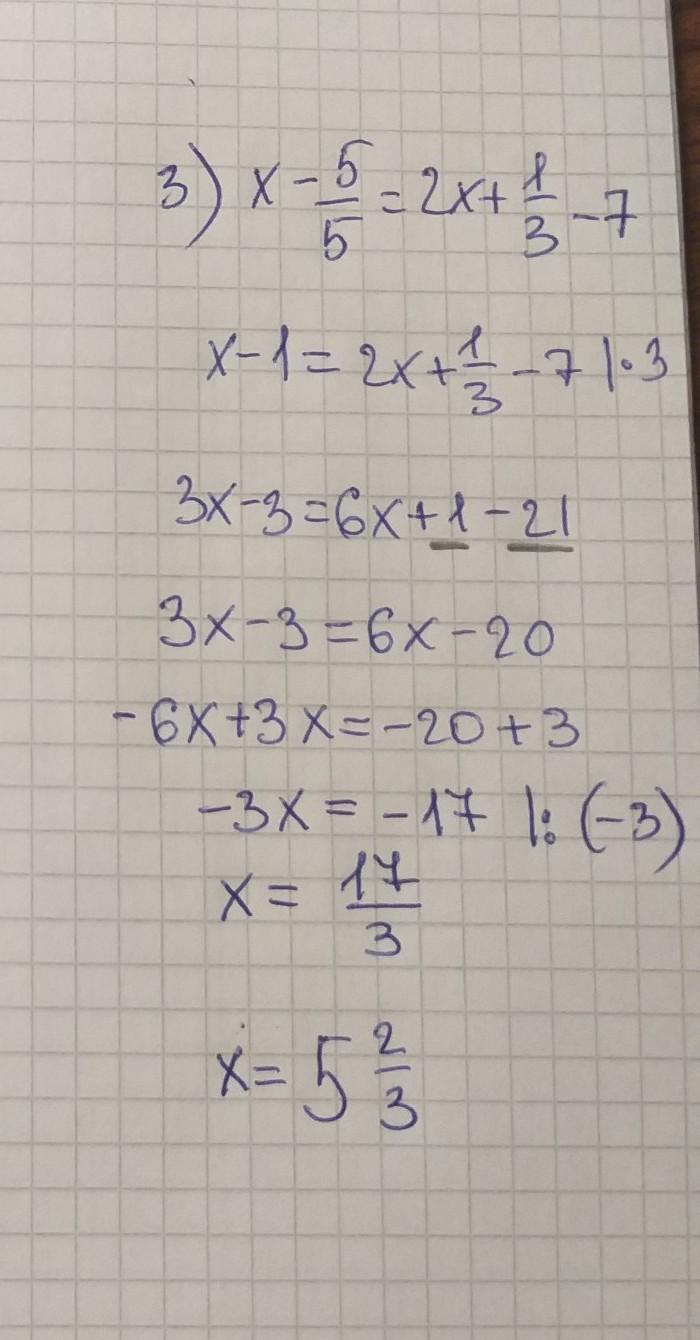 3) x - 5/5 = 2x + 1/3 - 7
x - 1 = 2x + 1/3 - 7 |· 3
3x - 3 = 6x + 1 - 21
3x - 3 = 6x - 20
- 6x + 3x = -20 + 3
-3x = -17 |: (-3)
x = 17/3
x = 5 2/3